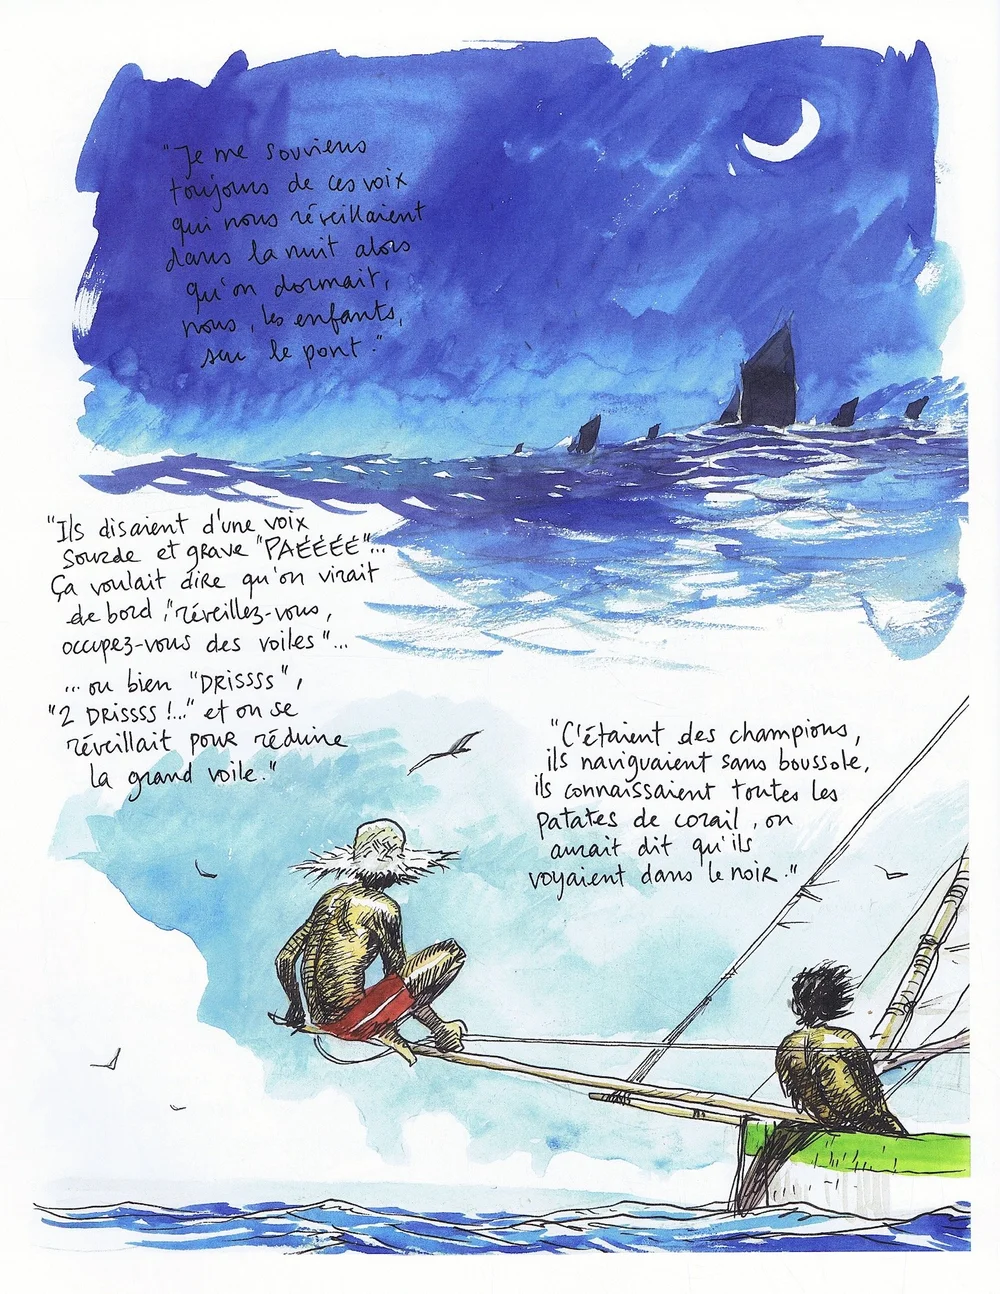 "Je me souviens
toujours de ces voix
qui nous réveillaient
dans la nuit alors
qu'on dormait,
nous, les enfants,
sur le pont."
"Ils disaient d'une voix
sourde et grave "PAÉÉÉÉ"...
Ça voulait dire qu'on virait
de bord, "réveillez-vous,
occupez-vous des voiles"...
... ou bien "DRISSSS",
"2 DRISSSS !..." et on se
réveillait pour réduire
la grand voile."
"C'étaient des champions,
ils naviguaient sans boussole,
ils connaissaient toutes les
patates de corail, on
aurait dit qu'ils
voyaient dans le noir."